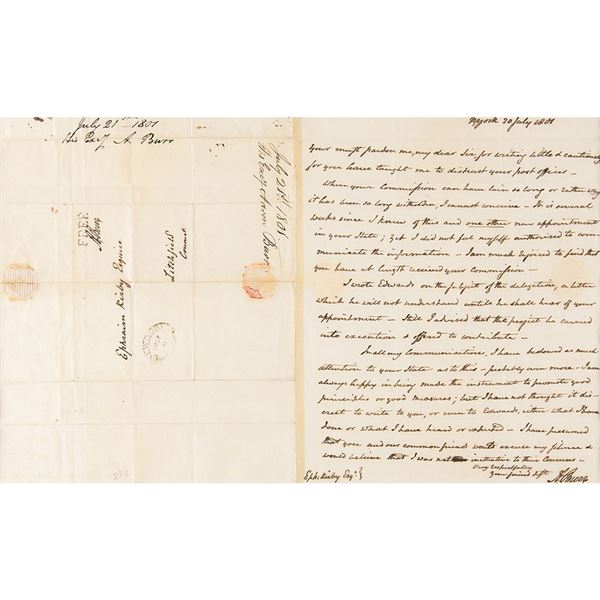 July 21st 1801
His Excy A. Burr
July 21st 1801
His Excy Aaron Burr
FREE
A Burr
Ephraim Kirby Esquire
Litchfield
Connect.
NYork 20 July 1801
your must pardon me, my dear Sir, for writing little & cautiously
for you have taught me to distrust your post offices —
Where your Commission can have lain so long or rather why
it has been so long withheld, I cannot conceive — It is several
weeks since I knew of this and one other new appointment
in your State; yet I did not feel myself authorised to com-
municate the information — I am much rejoiced to find that
you have at length received your commission —
I wrote Edwards on the subject of the delegation, a letter
which he will not understand until he shall hear of your
appointment — Still I advised that the project be carried
into execution & offered to contribute —
In all my Communications, I have bestowed as much
attention to your State as to this — probably even more — I am
always happy in being made the instrument to promote good
principles or good measures; but I have not thought it dis
creet to write to you, or even to Edwards, either what I have
done or what I have heard or expected — I have presumed
that you and our common friends would excuse my silence &
would believe that I was not inattentive to their Concerns —
Very respectfully
Your friend & st
A. Burr
Eph: Kirby Esqr